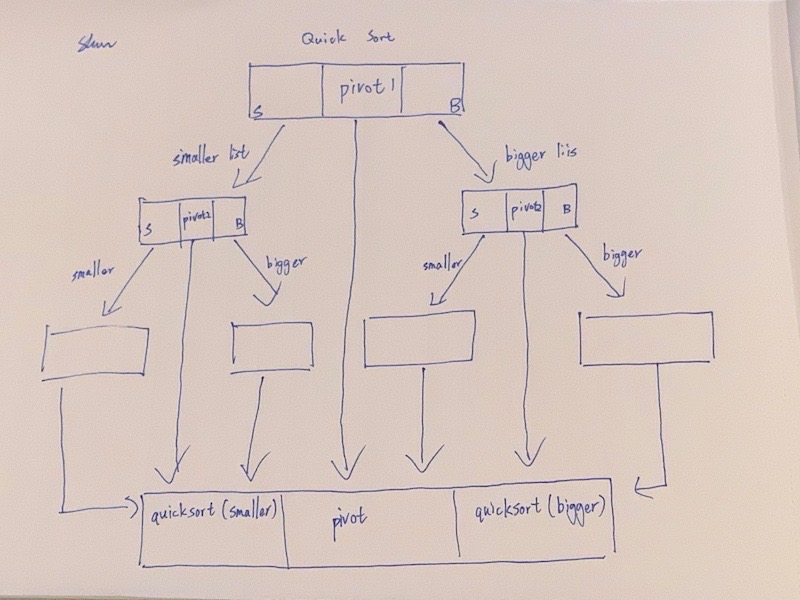 Quick Sort
S pivot1 B
smaller list
bigger liis
S pivot2 B
S pivot2 B
smaller
bigger
smaller
bigger
quicksort (smaller) pivot quicksort (bigger)